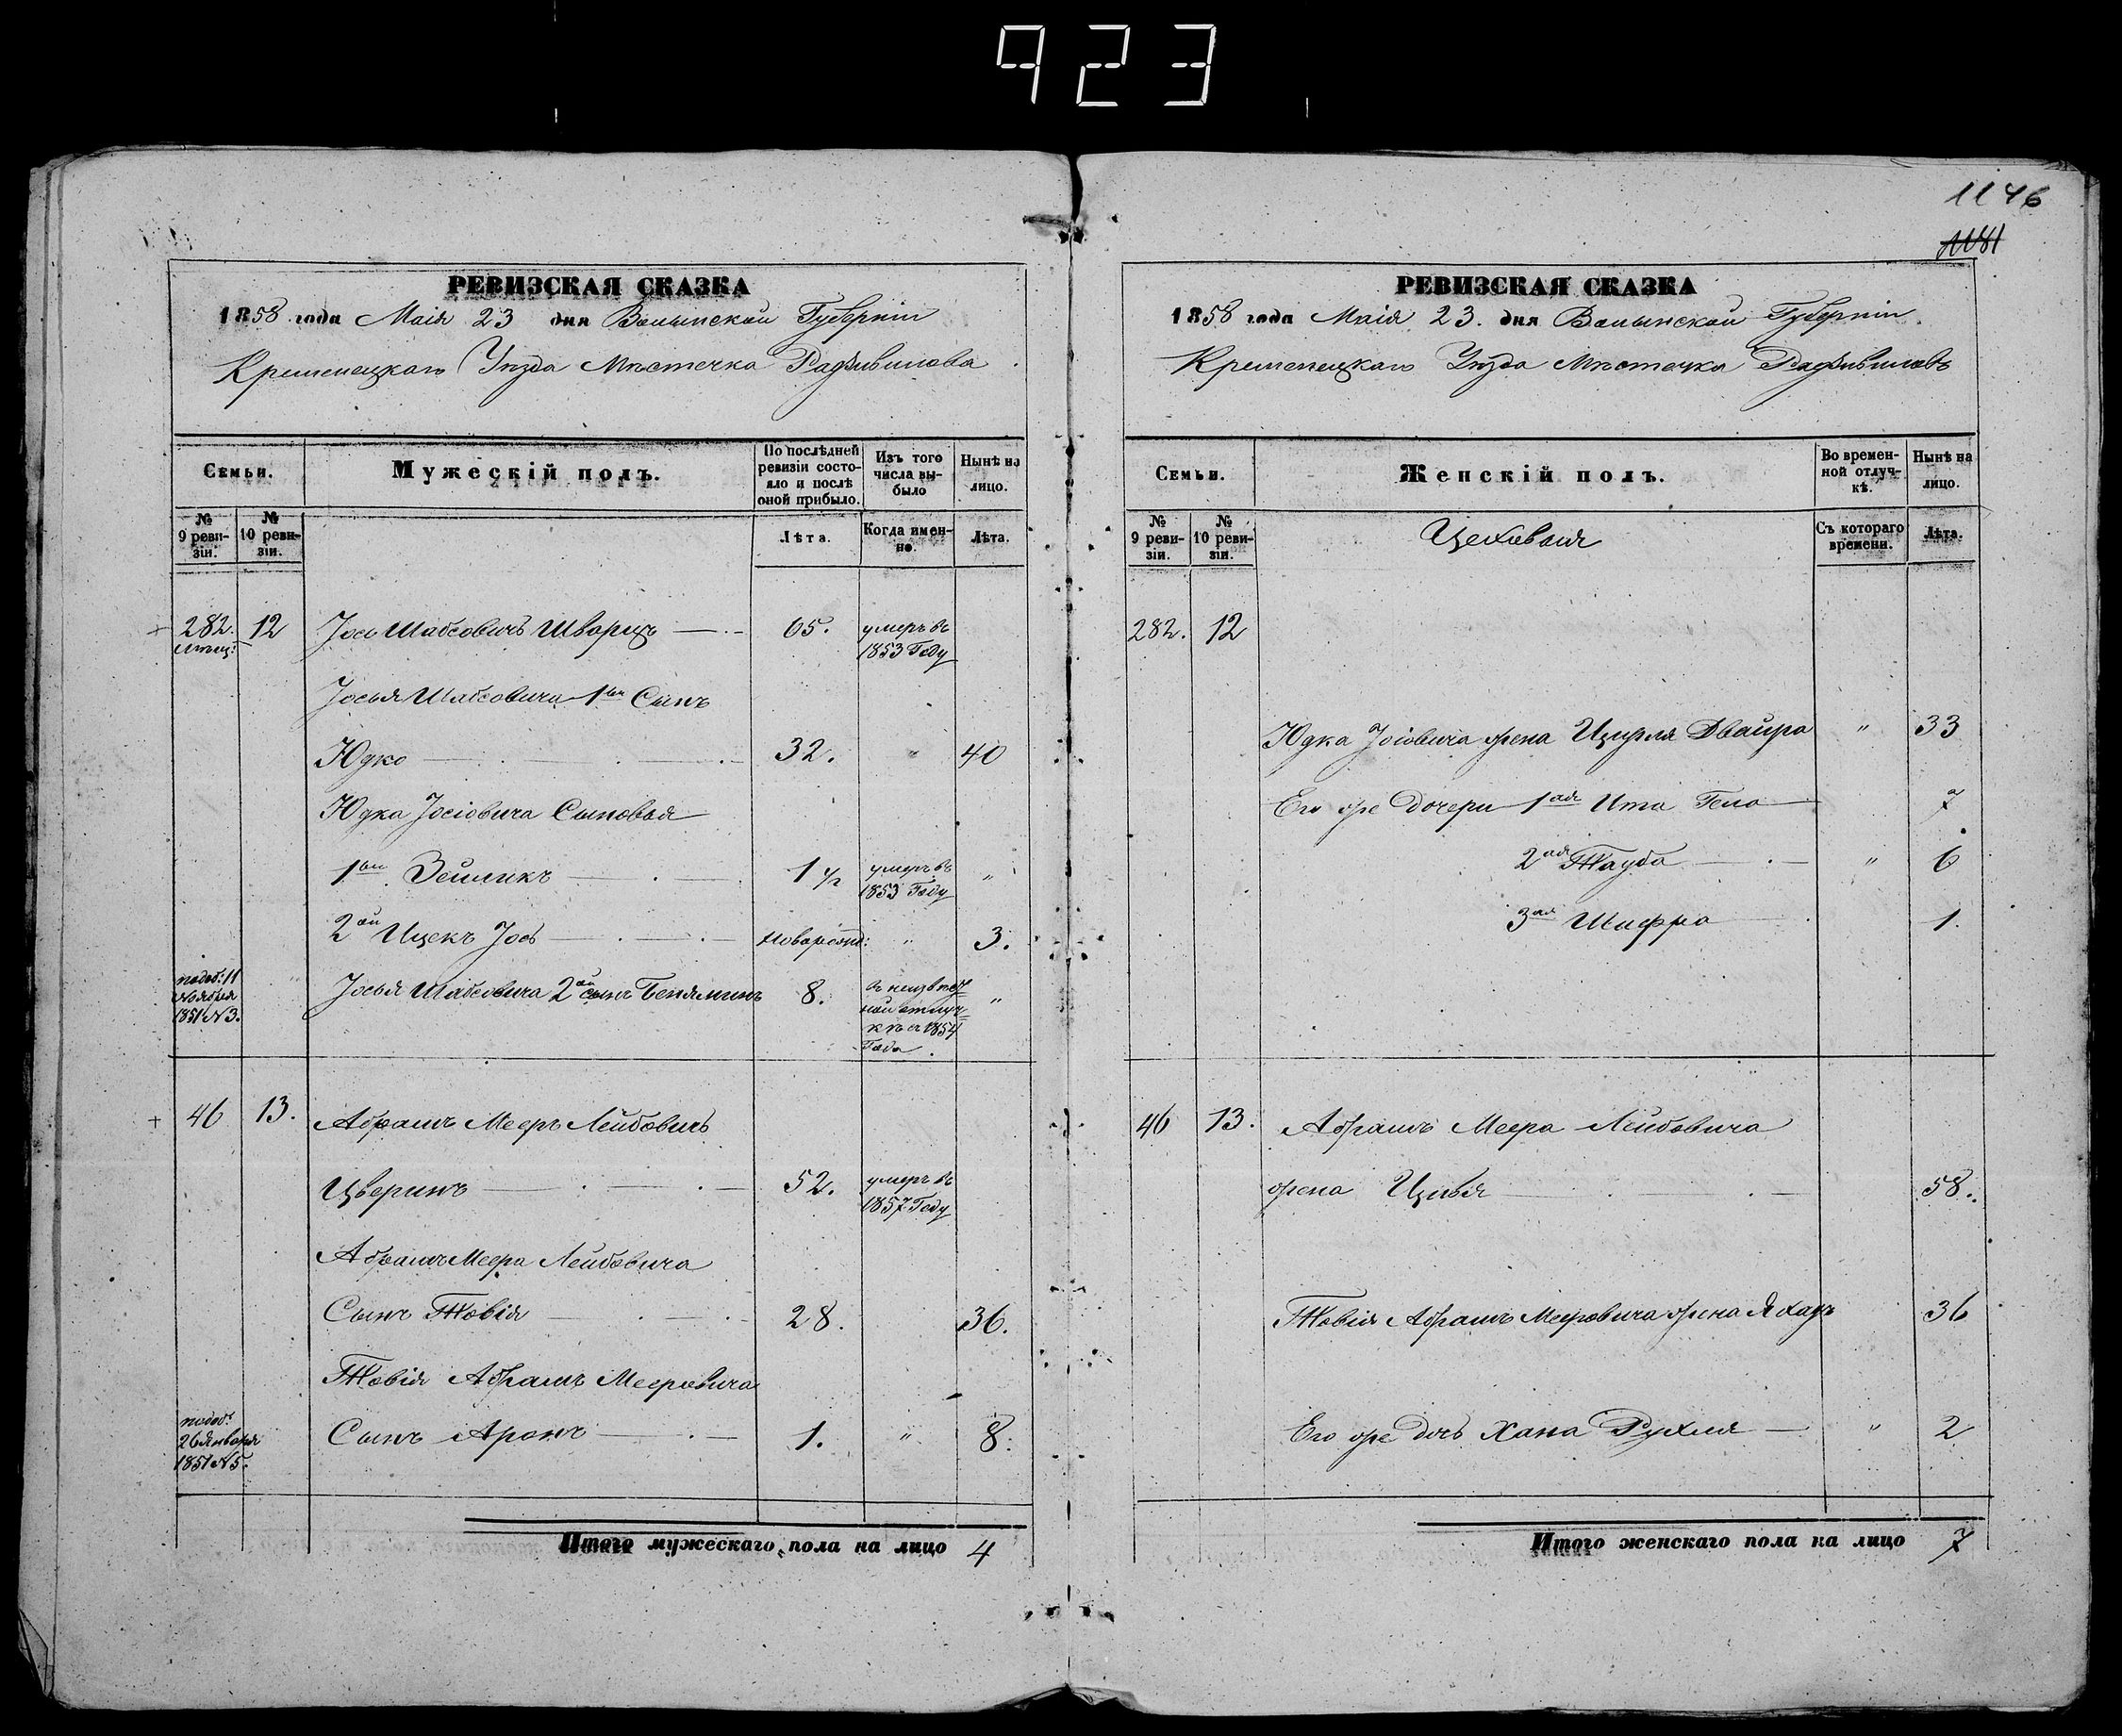 923
1146
1181
РЕВИЗСКАЯ СКАЗКА
1858 года Маія 23 дня Волынской Губерніи
Кременецкаго Уѣзда Мѣстечка Радзивилова
Семьи.
Мужескій полъ.
По послѣдней ревизіи состояло и послѣ оной прибыло.
Изъ того числа выбыло
Нынѣ на лицо.
№ 9 ревизіи.
№ 10 ревизіи.
Лѣта.
Когда именно.
Лѣта.
282. 12 Іось Шабсовичъ Шварцъ 65. умеръ въ 1853 Году
Іосья Шабсовича 1ый Сынъ
Юдко 32. " 40
Юдка Іосіовича Сыновья
1ый Зейликъ 1 1/2 умеръ въ 1853 Году "
2ой Ицекъ Іось новорожд: " 3.
подоб: 11 Ноября 1851 N 3. Іосья Шабсовича 2ой сынъ Беняминъ 8. въ неизвѣстной отлучкѣ съ 1854 Года "
46 13. Абрамъ Мееръ Лейбовичъ
Цверинъ 52. умеръ въ 1857 Году
Абрамъ Меера Лейбовича
Сынъ Товія 28. 36.
Товія Абрамъ Мееровича
подоб: 26 Января 1851 N 5. Сынъ Аронъ 1. " 8.
Итого мужескаго пола на лицо 4
РЕВИЗСКАЯ СКАЗКА
1858 года Маія 23. дня Волынской Губерніи
Кременецкаго Уѣзда Мѣстечка Радзивиловъ
Семьи.
Женскій полъ.
Во временной отлучкѣ.
Нынѣ на лицо.
№ 9 ревизіи.
№ 10 ревизіи.
Цеховыя
Съ котораго времени.
Лѣта.
282. 12
Юдка Іосіовича жена Цирля Двайра " 33
Его же дочери 1ая Ита Гена 7
2ая Тауба " 6
3ая Шифра 1.
46 13. Абрамъ Меера Лейбовича
жена Цивья 58.
Товія Абрамъ Мееровича жена 36
Его же дочь Хана Рухля " 2
Итого женскаго пола на лицо 7